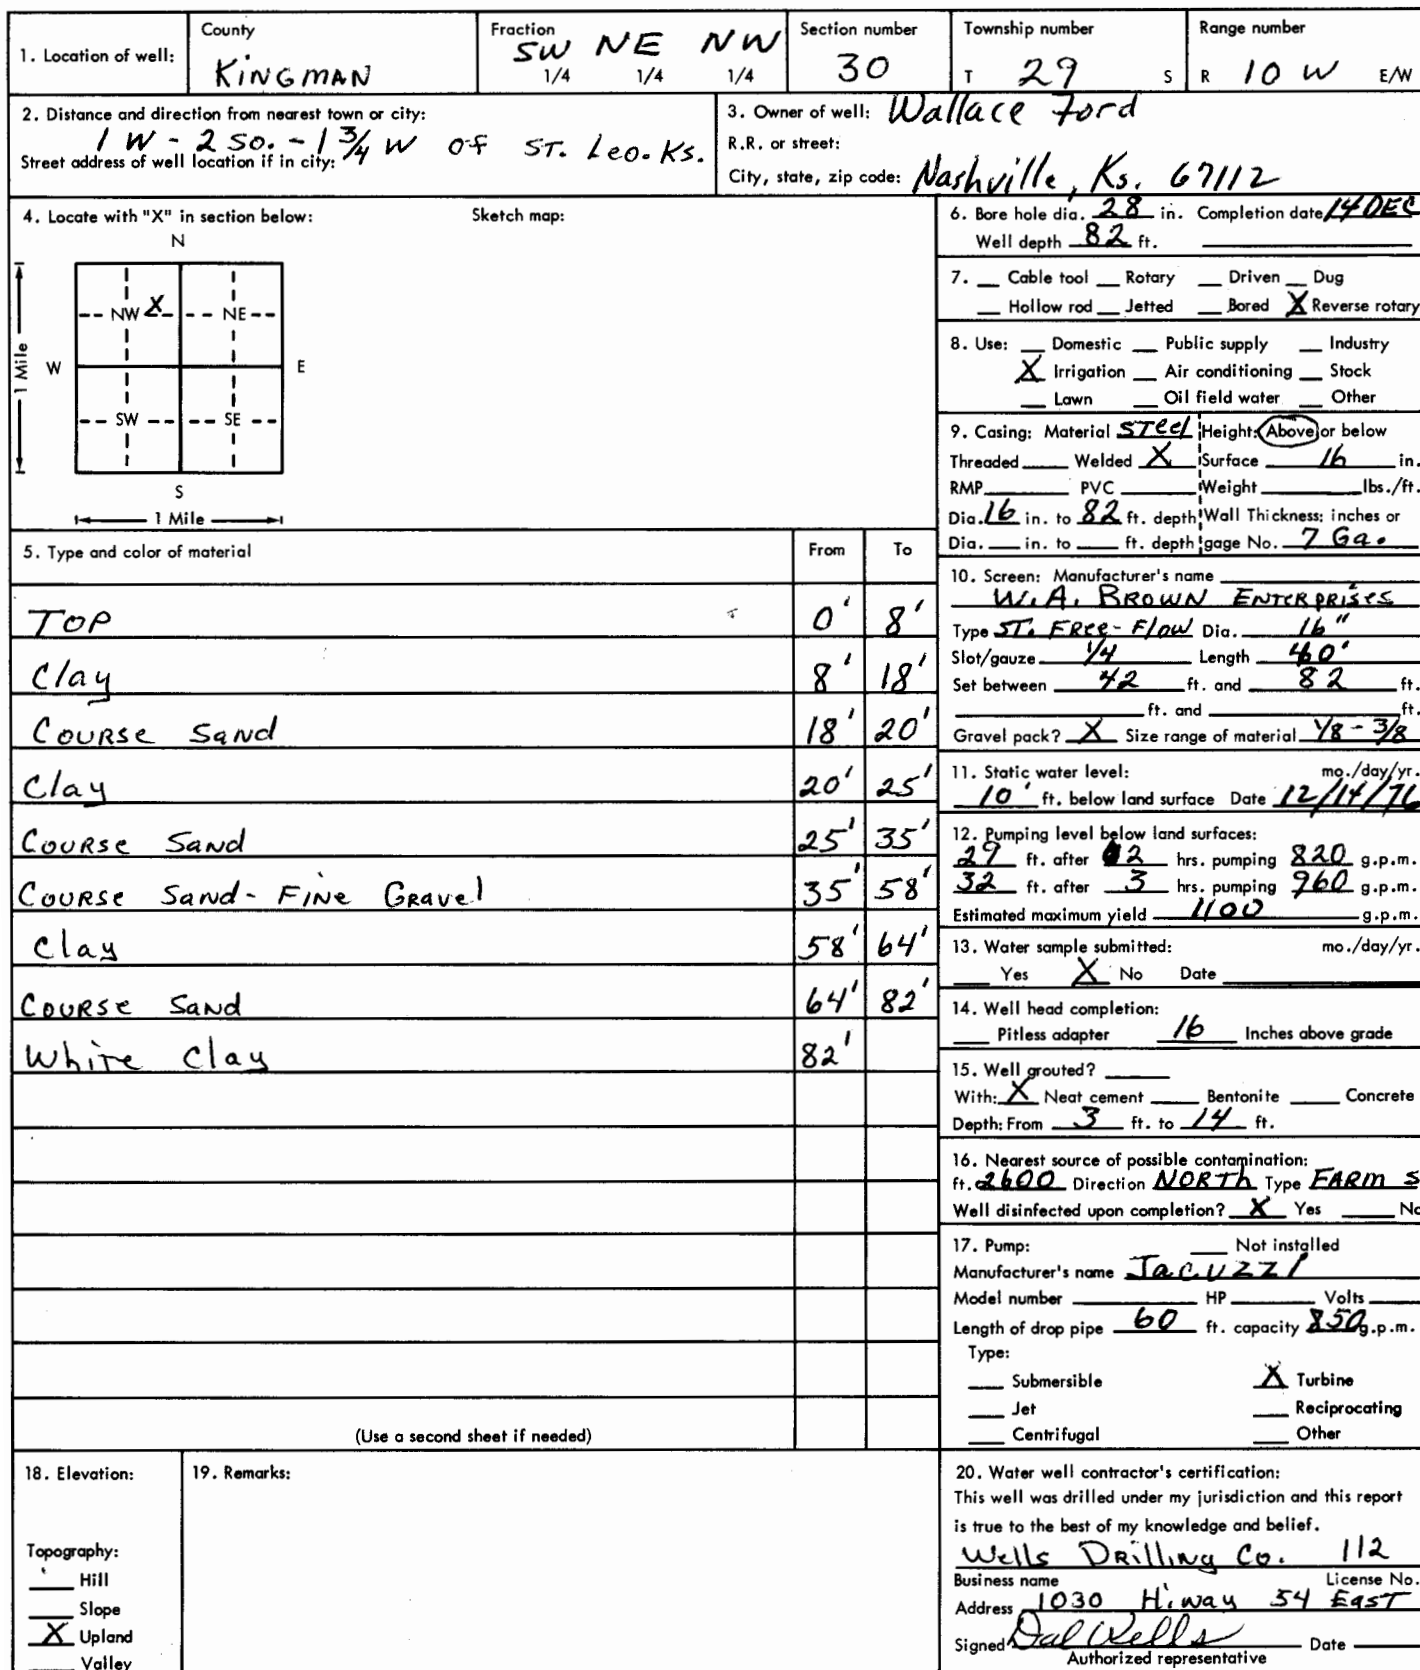 1. Location of well:
County
KINGMAN
Fraction
SW NE NW
1/4 1/4 1/4
Section number
30
Township number
T 29 S
Range number
R 10 W E/W
2. Distance and direction from nearest town or city:
1 W - 2 SO. - 1 3/4 W OF ST. Leo. Ks.
Street address of well location if in city:
3. Owner of well: Wallace Ford
R.R. or street:
City, state, zip code: Nashville, Ks. 67112
4. Locate with "X" in section below:
Sketch map:
N
NW X NE
W E
1 Mile
SW SE
S
1 Mile
5. Type and color of material From To
TOP 0' 8'
Clay 8' 18'
COURSE SAND 18' 20'
Clay 20' 25'
COURSE SAND 25' 35'
COURSE SAND - FINE GRAVEL 35' 58'
Clay 58' 64'
COURSE SAND 64' 82'
White Clay 82'
(Use a second sheet if needed)
6. Bore hole dia. 28 in. Completion date 14 DEC
Well depth 82 ft.
7. __ Cable tool __ Rotary __ Driven __ Dug
__ Hollow rod __ Jetted __ Bored X Reverse rotary
8. Use: __ Domestic __ Public supply __ Industry
X Irrigation __ Air conditioning __ Stock
__ Lawn __ Oil field water __ Other
9. Casing: Material STEEL Height: Above or below
Threaded ____ Welded X Surface 16 in.
RMP ____ PVC ____ Weight ____ lbs./ft.
Dia. 16 in. to 82 ft. depth Wall Thickness: inches or
Dia. ___ in. to ___ ft. depth gage No. 7 Ga.
10. Screen: Manufacturer's name
W.A. BROWN ENTERPRISES
Type ST. FREE-FLOW Dia. 16"
Slot/gauze 1/4 Length 40'
Set between 42 ft. and 82 ft.
____ ft. and ____ ft.
Gravel pack? X Size range of material 1/8 - 3/8
11. Static water level: mo./day/yr.
10' ft. below land surface Date 12/14/76
12. Pumping level below land surfaces:
29 ft. after 2 hrs. pumping 820 g.p.m.
32 ft. after 3 hrs. pumping 960 g.p.m.
Estimated maximum yield 1100 g.p.m.
13. Water sample submitted: mo./day/yr.
__ Yes X No Date
14. Well head completion:
__ Pitless adapter 16 Inches above grade
15. Well grouted?
With: X Neat cement ____ Bentonite ____ Concrete
Depth: From 3 ft. to 14 ft.
16. Nearest source of possible contamination:
ft. 2600 Direction NORTH Type FARM S
Well disinfected upon completion? X Yes ____ No
17. Pump: __ Not installed
Manufacturer's name Jacuzzi
Model number ____ HP ____ Volts
Length of drop pipe 60 ft. capacity 850 g.p.m.
Type:
__ Submersible X Turbine
__ Jet __ Reciprocating
__ Centrifugal __ Other
18. Elevation:
Topography:
__ Hill
__ Slope
X Upland
__ Valley
19. Remarks:
20. Water well contractor's certification:
This well was drilled under my jurisdiction and this report
is true to the best of my knowledge and belief.
Wells Drilling Co. 112
Business name License No.
Address 1030 Hiway 54 East
Signed Dal Wells Date
Authorized representative